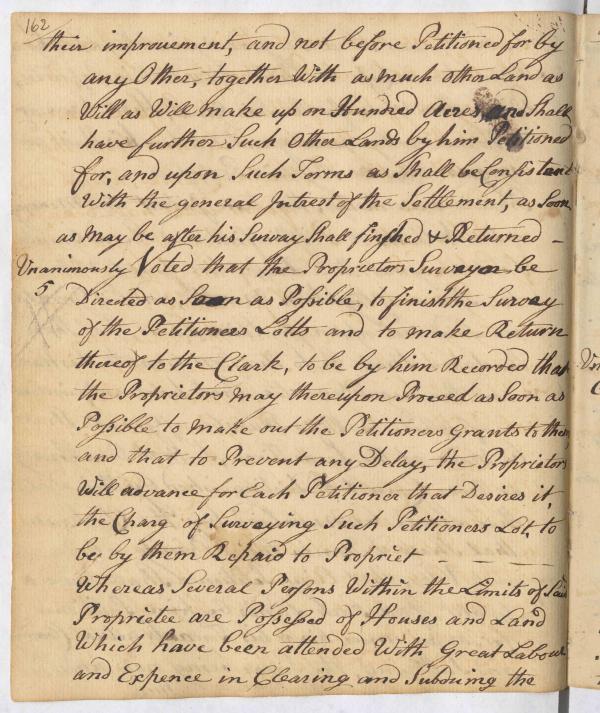 162
their improuement, and not before Petitioned for by
any Other, together With as much other Land as
Will as Will make up on Hundred Acres, and Shall
have further Such Other Lands by him Petitioned
for, and upon Such Terms as Shall be Consistant
With the general Intrest of the Settlement, as Soon
as may be after his Survay Shall finshed & Returned -
Unanimously Voted that the Proprietors Surveyor be
5 Directed as Soon as Possible, to finish the Survey
of the Petitioners Lotts and to make Return
thereof to the Clark, to be by him Recorded that
the Proprietors may thereupon Proceed as Soon as
Possible to make out the Petitioners Grants to them
and that to Prevent any Delay, the Proprietors
Will advance for Each Petitioner that Desires it,
the Charg of Surveying Such Petitioners Lot, to
be by them Repaid to Propriet - - -
Whereas Several Persons Within the Limits of Said
Proprietee are Possessed of Houses and Land
Which have been attended With Great Labour
and Expence in Clearing and Subduing the